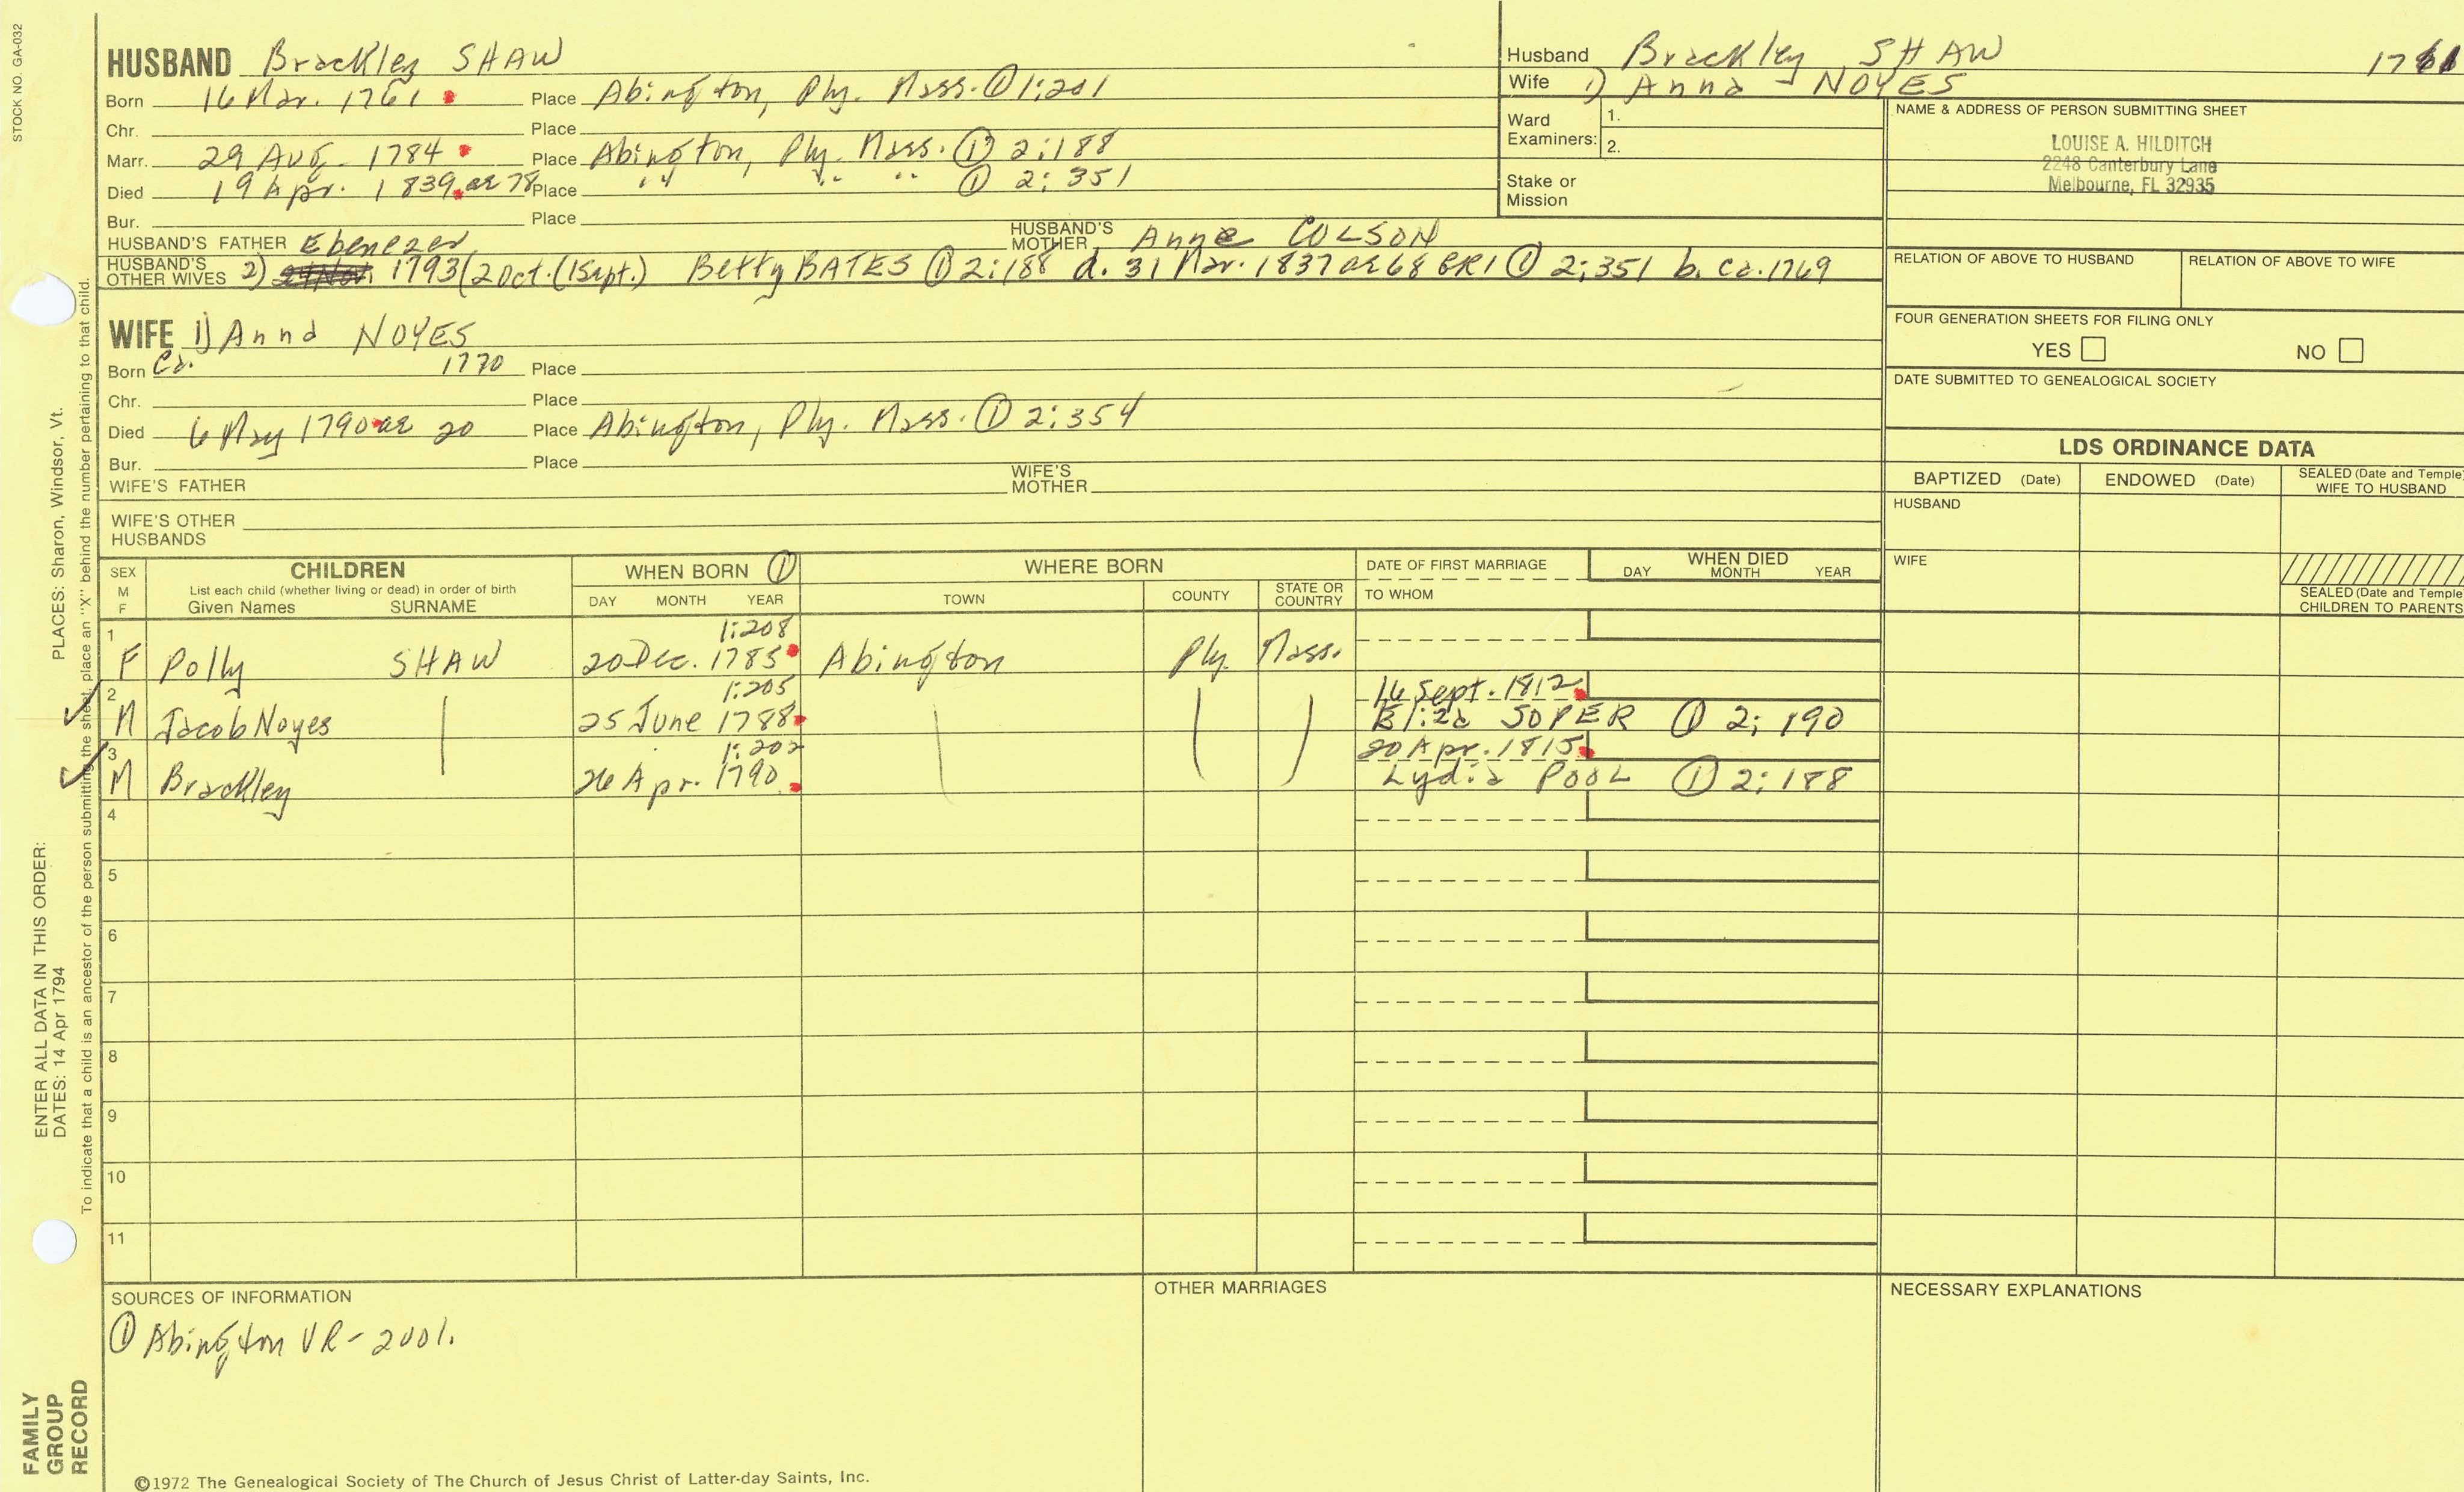 STOCK NO. GA-032
HUSBAND Brackley SHAW
Born 16 Mar. 1761 Place Abington, Ply. Mass. ① 1:201
Chr. Place
Marr. 29 Aug. 1784 Place Abington, Ply. Mass. ① 2:188
Died 19 Apr. 1839 ae 78 Place " " " ① 2:351
Bur. Place
HUSBAND'S FATHER Ebenezer HUSBAND'S MOTHER Anne COLSON
HUSBAND'S OTHER WIVES 2) 1793 (2 Oct. (1 Sept.) Betty BATES ① 2:188 d. 31 Mar. 1837 ae 68 GR1 ① 2:351 b. ca. 1769
Husband Brackley SHAW 1761
Wife 1) Anna NOYES
Ward Examiners: 1.
2.
Stake or Mission
NAME & ADDRESS OF PERSON SUBMITTING SHEET
LOUISE A. HILDITCH
2248 Canterbury Lane
Melbourne, FL 32935
RELATION OF ABOVE TO HUSBAND RELATION OF ABOVE TO WIFE
FOUR GENERATION SHEETS FOR FILING ONLY
YES NO
DATE SUBMITTED TO GENEALOGICAL SOCIETY
WIFE 1) Anna NOYES
Born Ca. 1770 Place
Chr. Place
Died 6 May 1790 ae 20 Place Abington, Ply. Mass. ① 2:354
Bur. Place
WIFE'S FATHER WIFE'S MOTHER
WIFE'S OTHER HUSBANDS
LDS ORDINANCE DATA
BAPTIZED (Date) ENDOWED (Date) SEALED (Date and Temple) WIFE TO HUSBAND
HUSBAND
WIFE
SEALED (Date and Temple) CHILDREN TO PARENTS
SEX M F
CHILDREN
List each child (whether living or dead) in order of birth
Given Names SURNAME
WHEN BORN ①
DAY MONTH YEAR
WHERE BORN
TOWN COUNTY STATE OR COUNTRY
DATE OF FIRST MARRIAGE
TO WHOM
WHEN DIED
DAY MONTH YEAR
1:208
1 F Polly SHAW 20 Dec. 1785 Abington Ply. Mass.
1:205 16 Sept. 1812
2 M Jacob Noyes 25 June 1788 Eliza SOPER ① 2:190
1:202 20 Apr. 1815
3 M Brackley 26 Apr. 1790 Lydia POOL ① 2:188
4
5
6
7
8
9
10
11
SOURCES OF INFORMATION
① Abington VR - 2001.
OTHER MARRIAGES
NECESSARY EXPLANATIONS
©1972 The Genealogical Society of The Church of Jesus Christ of Latter-day Saints, Inc.
FAMILY
GROUP
RECORD
ENTER ALL DATA IN THIS ORDER:
DATES: 14 Apr 1794
PLACES: Sharon, Windsor, Vt.
To indicate that a child is an ancestor of the person submitting the sheet, place an "X" behind the number pertaining to that child.